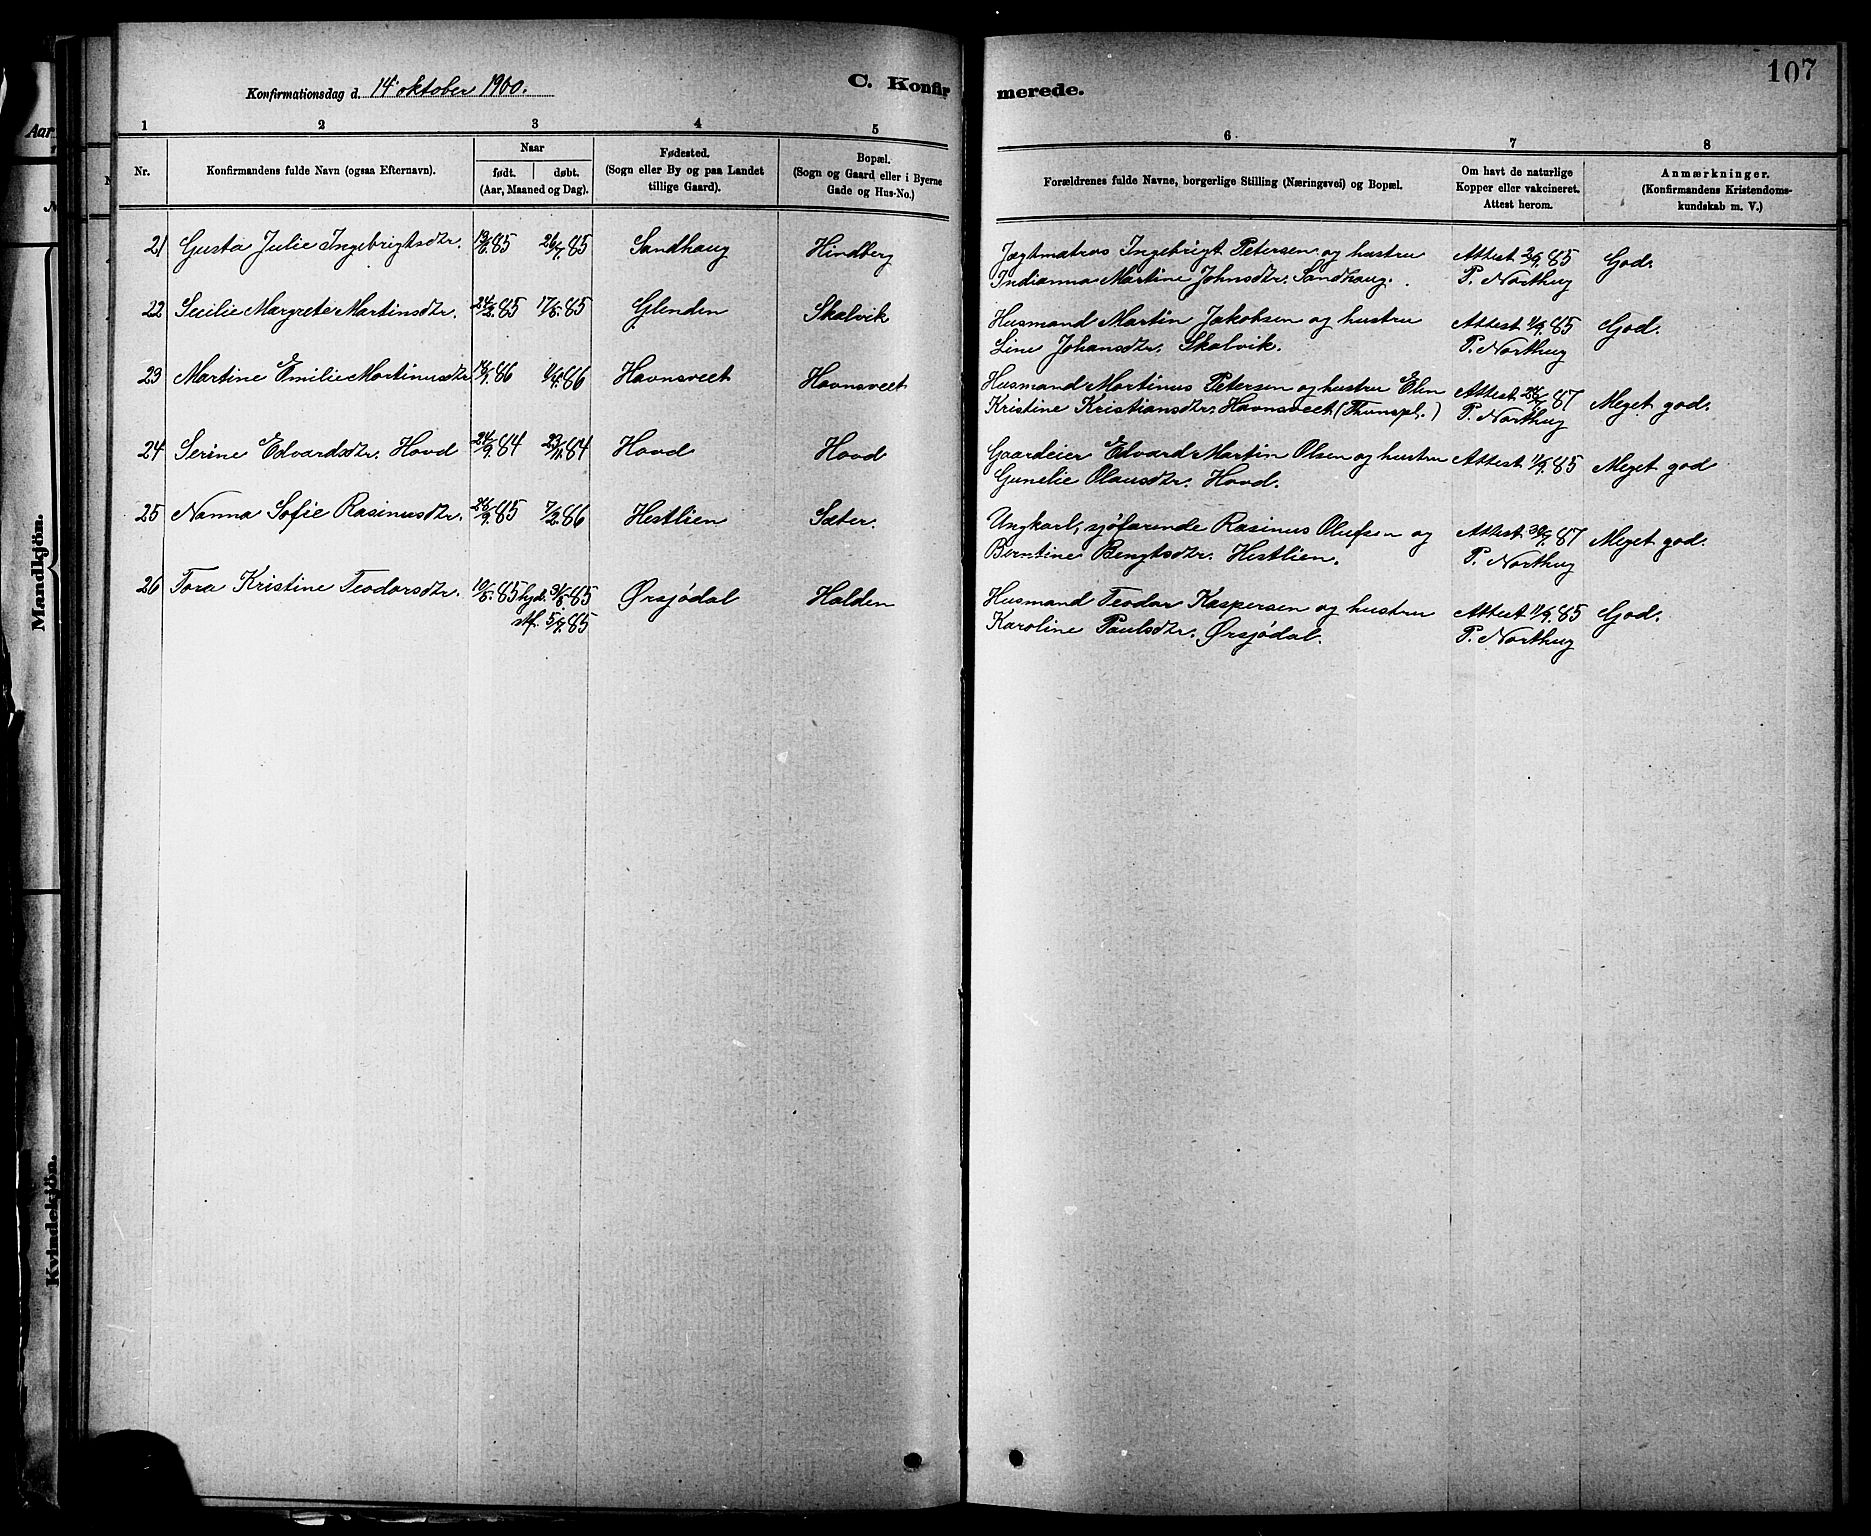 Konfirmationsdag d. 14 oktober 1900.
C. Konfirmerede.
107
1 2 3 4 5 6 7 8
Nr.
Konfirmandens fulde Navn (ogsaa Efternavn).
Naar
født. døbt.
(Aar, Maaned og Dag).
Fødested.
(Sogn eller By og paa Landet
tillige Gaard).
Bopæl.
(Sogn og Gaard eller i Byerne
Gade og Hus-No.)
Forældrenes fulde Navne, borgerlige Stilling (Næringsvei) og Bopæl.
Om havt de naturlige
Kopper eller vakcineret.
Attest herom.
Anmærkninger.
(Konfirmandens Kristendoms-
kundskab m. V.)
21 Gusta Julie Ingebrigtsdtr. 85 85 Sandhaug Hindberg Jægtmatros Ingebrigt Petersen og hustru Attest 85 God.
Indianna Martine Johnsdtr. Sandhaug. P. Northug
22 Secilie Margrete Martinsdtr. 85 85 Glenden Skalvik Husmand Martin Jakobsen og hustru Attest 1/9.85 God.
Line Johansdtr. Skalvik. P. Northug
23 Martine Emilie Martinusdtr 86 86 Havnsveet Havnsveet Husmand Martinus Petersen og hustru Elen Attest 87 Meget god.
Kristine Kristiansdtr. Havnsveet (Thunspl.) P. Northug
24 Serine Edvardsdtr. Hovd 24/9.84 84 Hovd Hovd Gaardeier Edvard Martin Olsen og hustru Attest 1/9.85 Meget god
Gunelie Olausdtr. Hovd.
25 Nanna Sofie Rasinusdtr. 26/9.85 7/2.86 Hestlien Sæter. Ungkarl, sjøfarende Rasinus Olufsen og Attest 87 Meget god.
Berntine Bengtsdtr. Hestlien. P. Northug
26 Tora Kristine Teodorsdtr. 10/8.85 hjd. 31/8.85 Ørsjödal Halden Husmand Teodor Kaspersen og hustru Attest 11/9.85 God.
stf. 5/9.85 Karoline Paulsdtr. Ørsjödal. P. Northug
Aar
Mandkjön.
Kvindekjön.